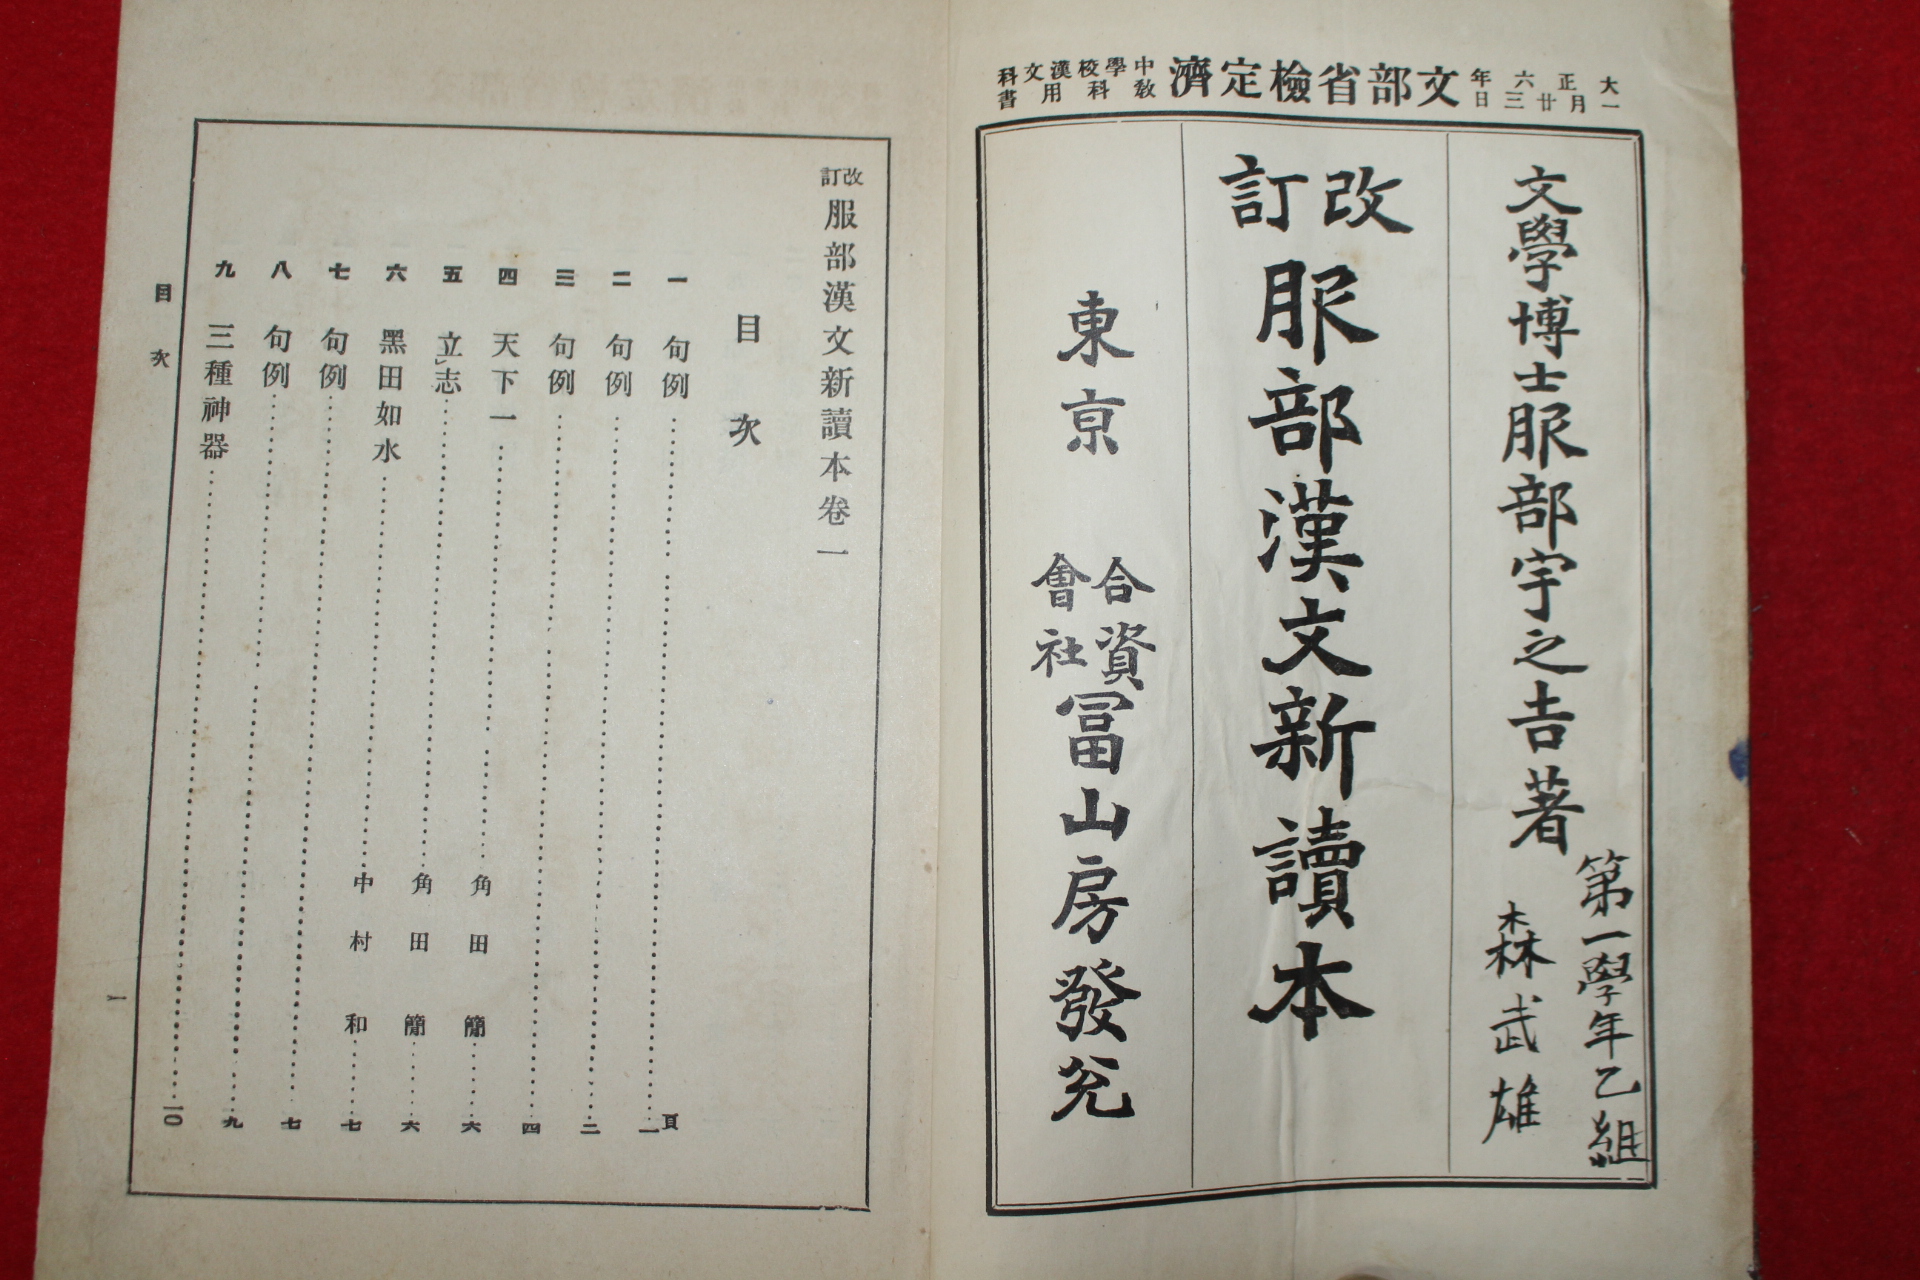 大正六年一月廿三日 文部省檢定濟 中學校漢文科敎科用書
文學博士服部宇之吉著
第一學年乙組
森武雄
改訂 服部漢文新讀本
東京 合資會社 冨山房發兌
改訂 服部漢文新讀本卷一
目次
頁
一 句例……一
二 句例……二
三 句例……四
四 天下一……角田簡……六
五 立志……角田簡……六
六 黑田如水……中村和……七
七 句例……七
八 句例……九
九 三種神器……一〇
目次
一